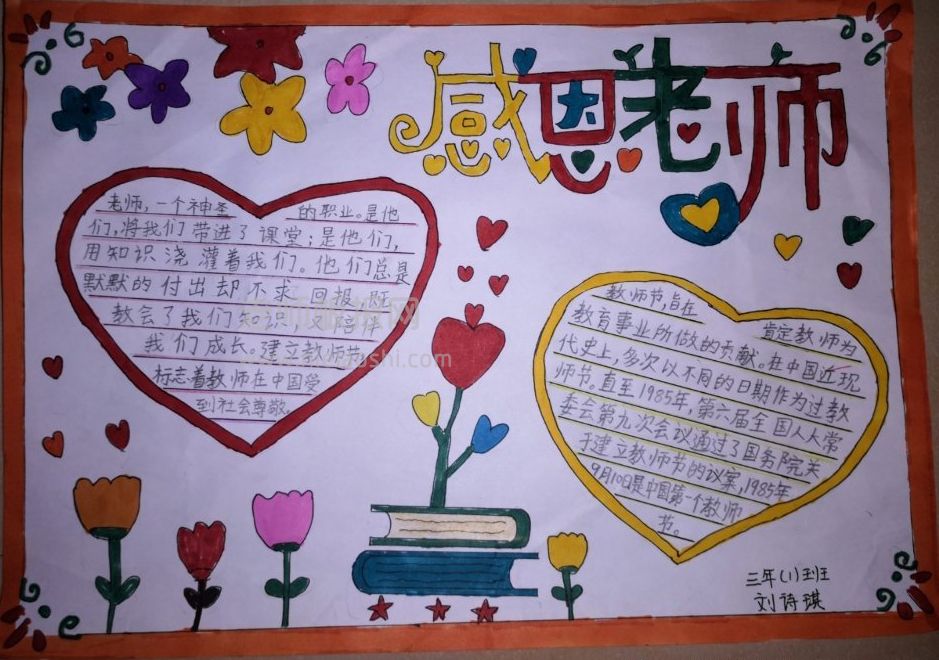 感恩老师
老师,一个神圣 的职业。是他
们,将我们带进了课堂;是他们,
用知识浇灌着我们。他们总是
默默的付出却不求回报,既
教会了我们知识,又陪伴
我们成长。建立教师节
标志着教师在中国受
到社会尊敬。
教师节,旨在 肯定教师为
教育事业所做的贡献。在中国近现
代史上,多次以不同的日期作为过教
师节。直至1985年,第六届全国人大常
委会第九次会议通过了国务院关
于建立教师节的议案,1985年
9月10日是中国第一个教师
节。
三年(1)班
刘诗琪